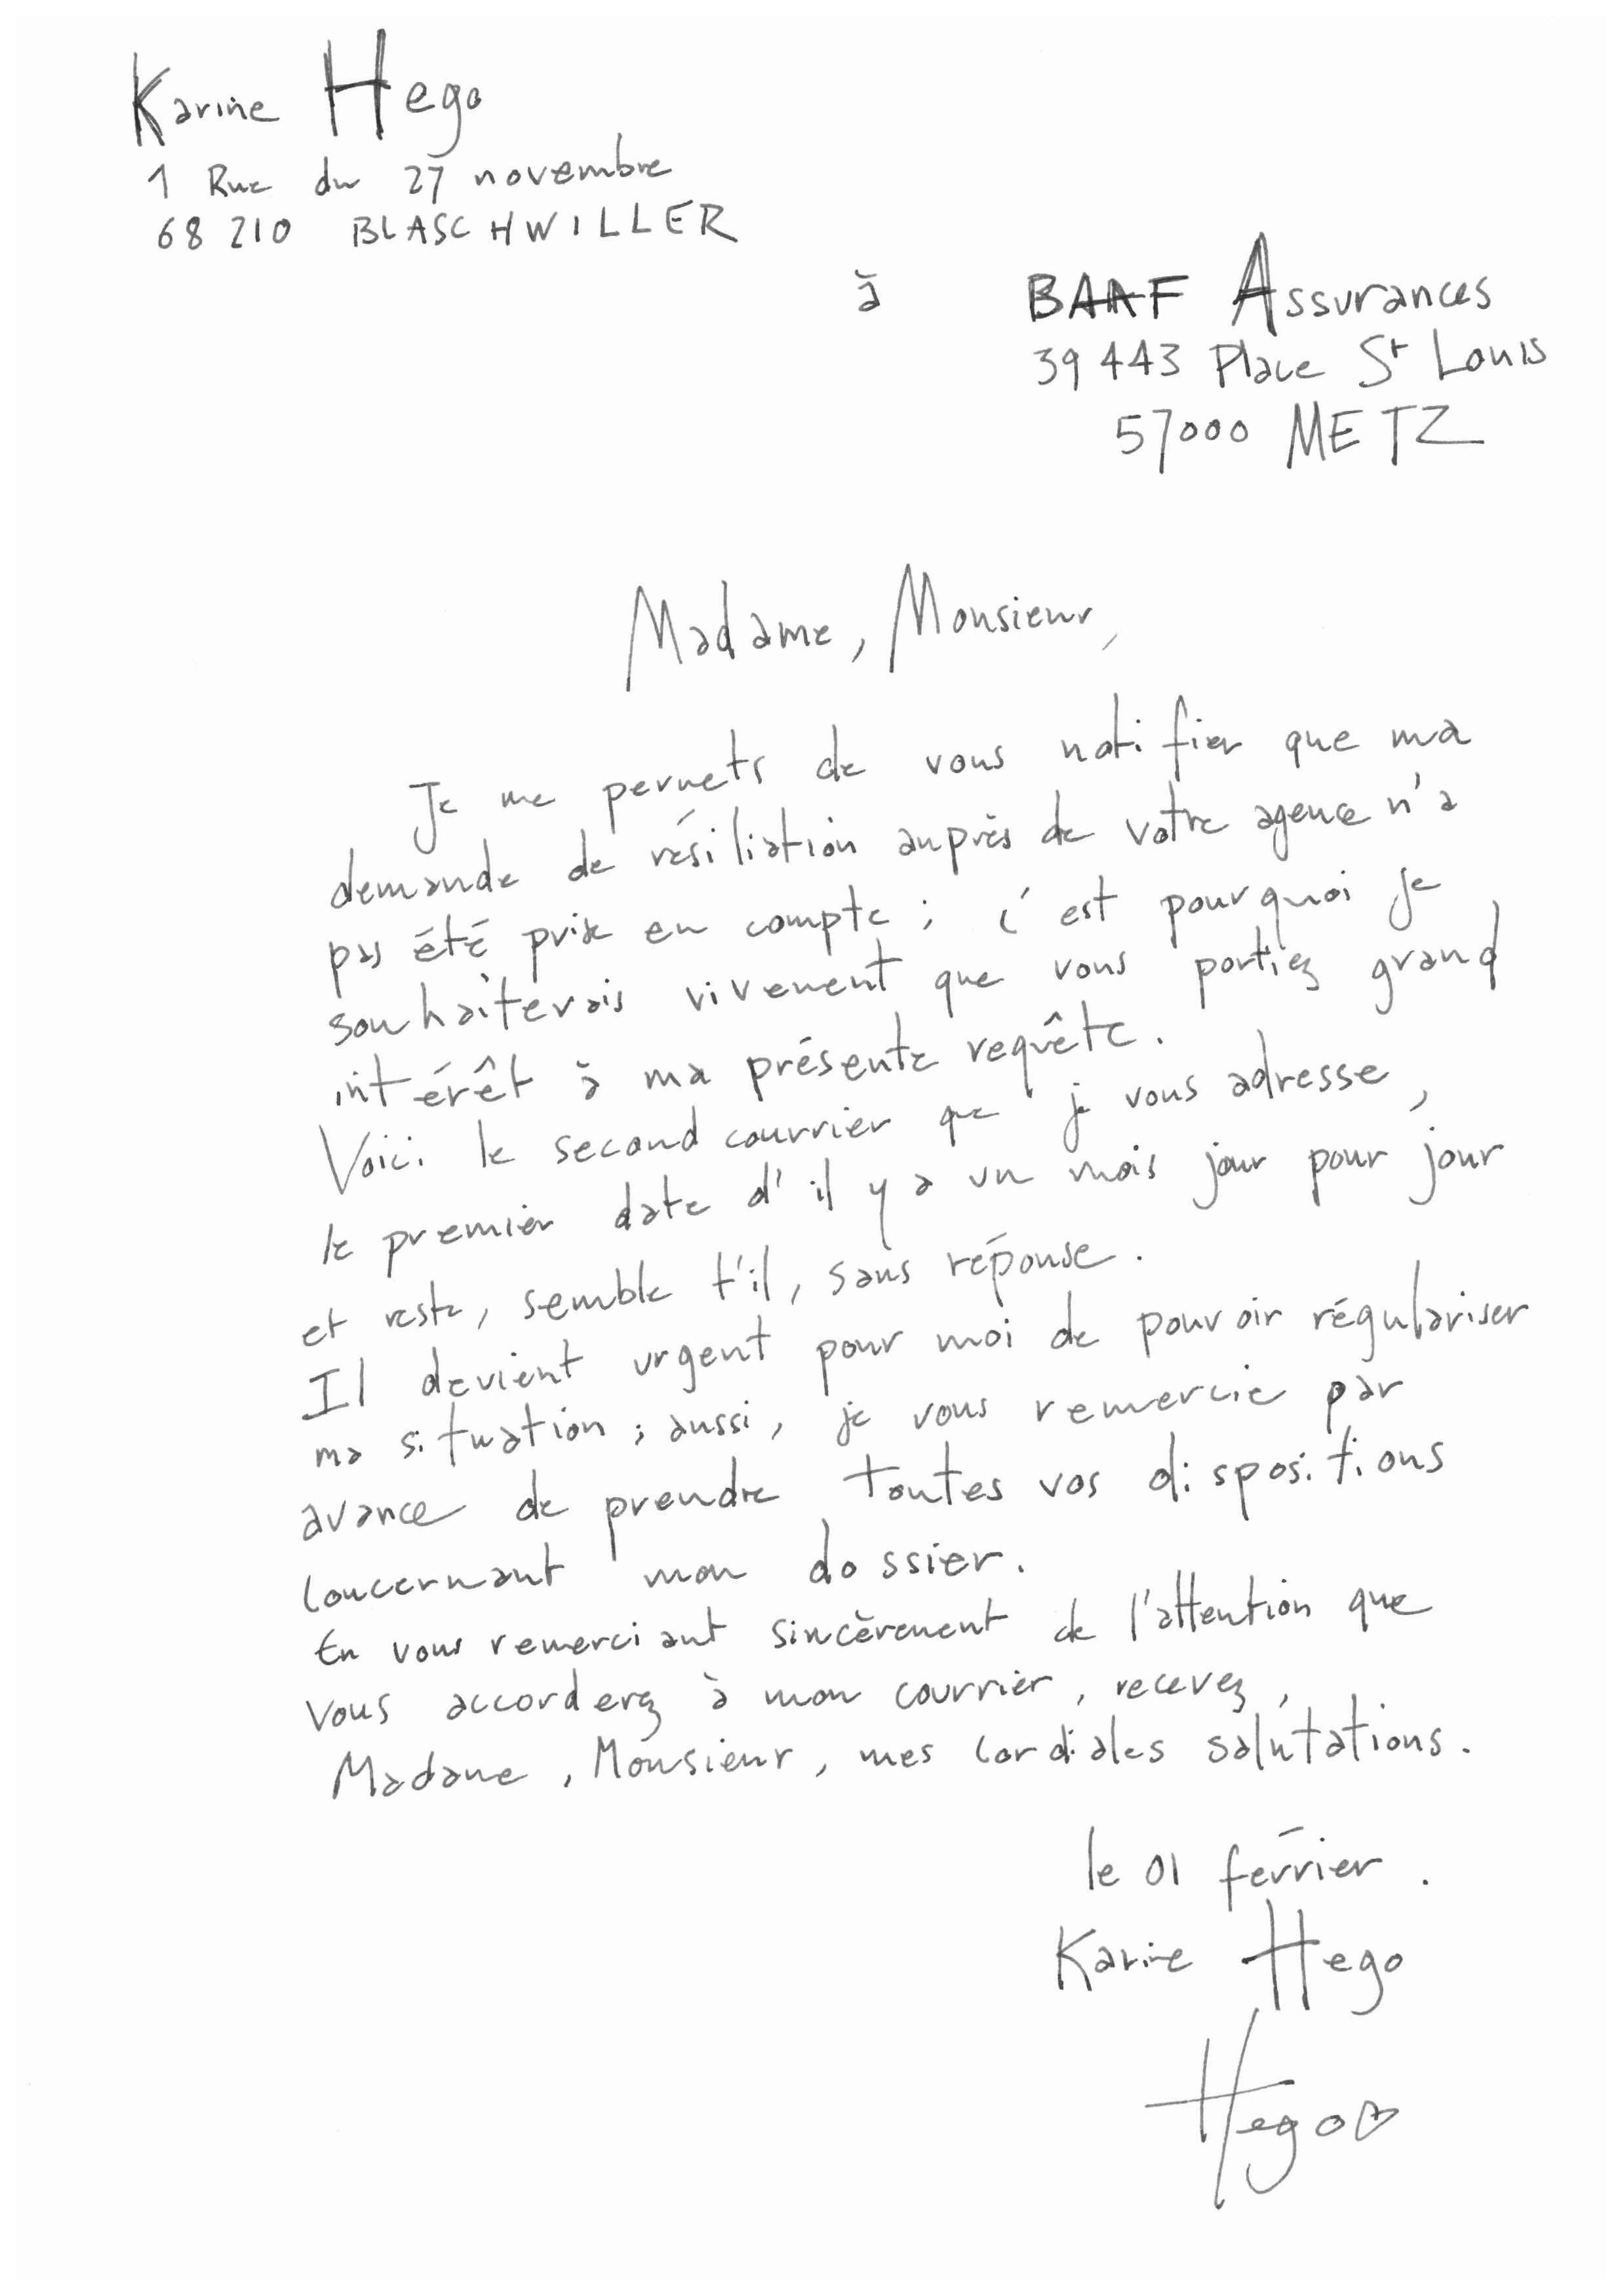 Karine Hego
1 Rue du 27 novembre
68 210 BLASCHWILLER
à
BAAF Assurances
39 443 Place St Louis
57000 METZ
Madame, Monsieur,
Je me permets de vous notifier que ma
demande de résiliation auprès de votre agence n'a
pas été prise en compte ; c'est pourquoi je
souhaiterais vivement que vous portiez grand
intérêt à ma présente requête.
Voici le second courrier que je vous adresse,
le premier date d'il y a un mois jour pour jour
et reste, semble t'il, sans réponse.
Il devient urgent pour moi de pouvoir régulariser
ma situation ; aussi, je vous remercie par
avance de prendre toutes vos dispositions
concernant mon dossier.
En vous remerciant sincèrement de l'attention que
vous accorderez à mon courrier, recevez,
Madame, Monsieur, mes cordiales salutations.
le 01 février.
Karine Hego
Hego